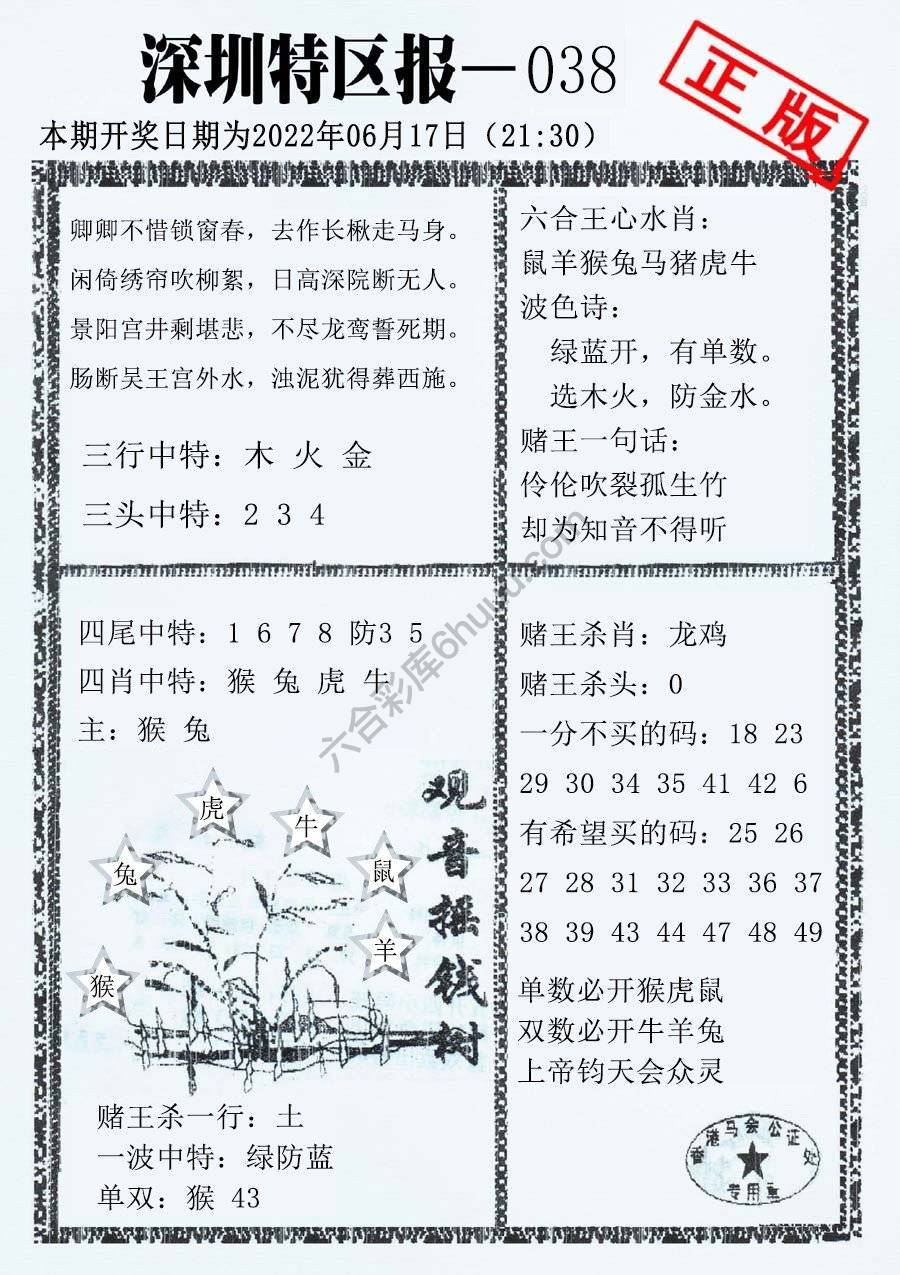 深圳特区报—038
正版
本期开奖日期为2022年06月17日（21:30）
卿卿不惜锁窗春，去作长楸走马身。
闲倚绣帘吹柳絮，日高深院断无人。
景阳宫井剩堪悲，不尽龙鸾誓死期。
肠断吴王宫外水，浊泥犹得葬西施。
三行中特：木 火 金
三头中特：2 3 4
六合王心水肖：
鼠羊猴兔马猪虎牛
波色诗：
绿蓝开，有单数。
选木火，防金水。
赌王一句话：
伶伦吹裂孤生竹
却为知音不得听
四尾中特：1 6 7 8 防3 5
四肖中特：猴 兔 虎 牛
主：猴 兔
虎
牛
兔
鼠
羊
猴
观音摇钱树
赌王杀一行：土
一波中特：绿防蓝
单双：猴 43
赌王杀肖：龙鸡
赌王杀头：0
一分不买的码：18 23
29 30 34 35 41 42 6
有希望买的码：25 26
27 28 31 32 33 36 37
38 39 43 44 47 48 49
单数必开猴虎鼠
双数必开牛羊兔
上帝钧天会众灵
香港马会公证处
专用章
六合彩库6huuu.com